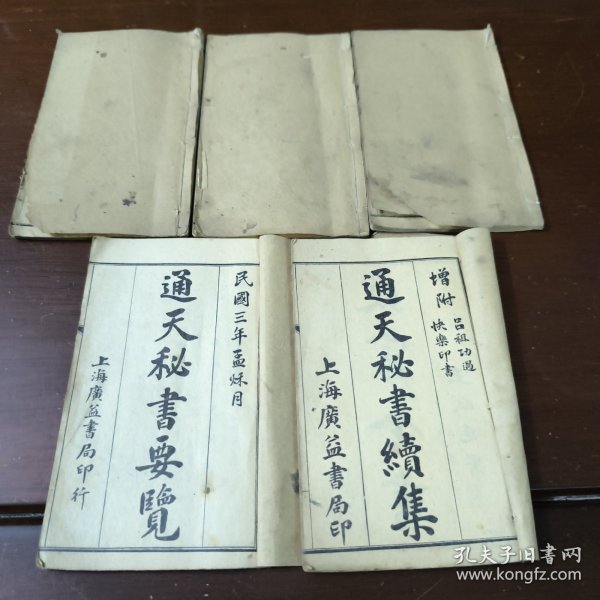 增附
呂祖功過
快樂印書
通天秘書續集
上海廣益書局印
民國三年孟秌月
通天秘書要覽
上海廣益書局印行
孔夫子旧书网
www.kongfz.com